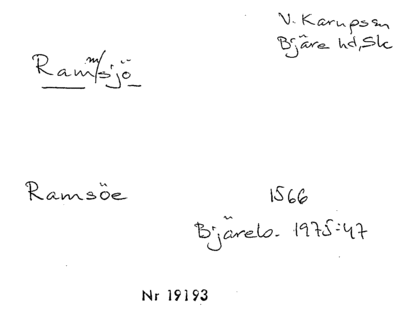 V. Karupssn
Bjäre hd, Sk
Ram/sjö
m
Ramsöe 1566
Bjärelo. 1975:47
Nr 19193